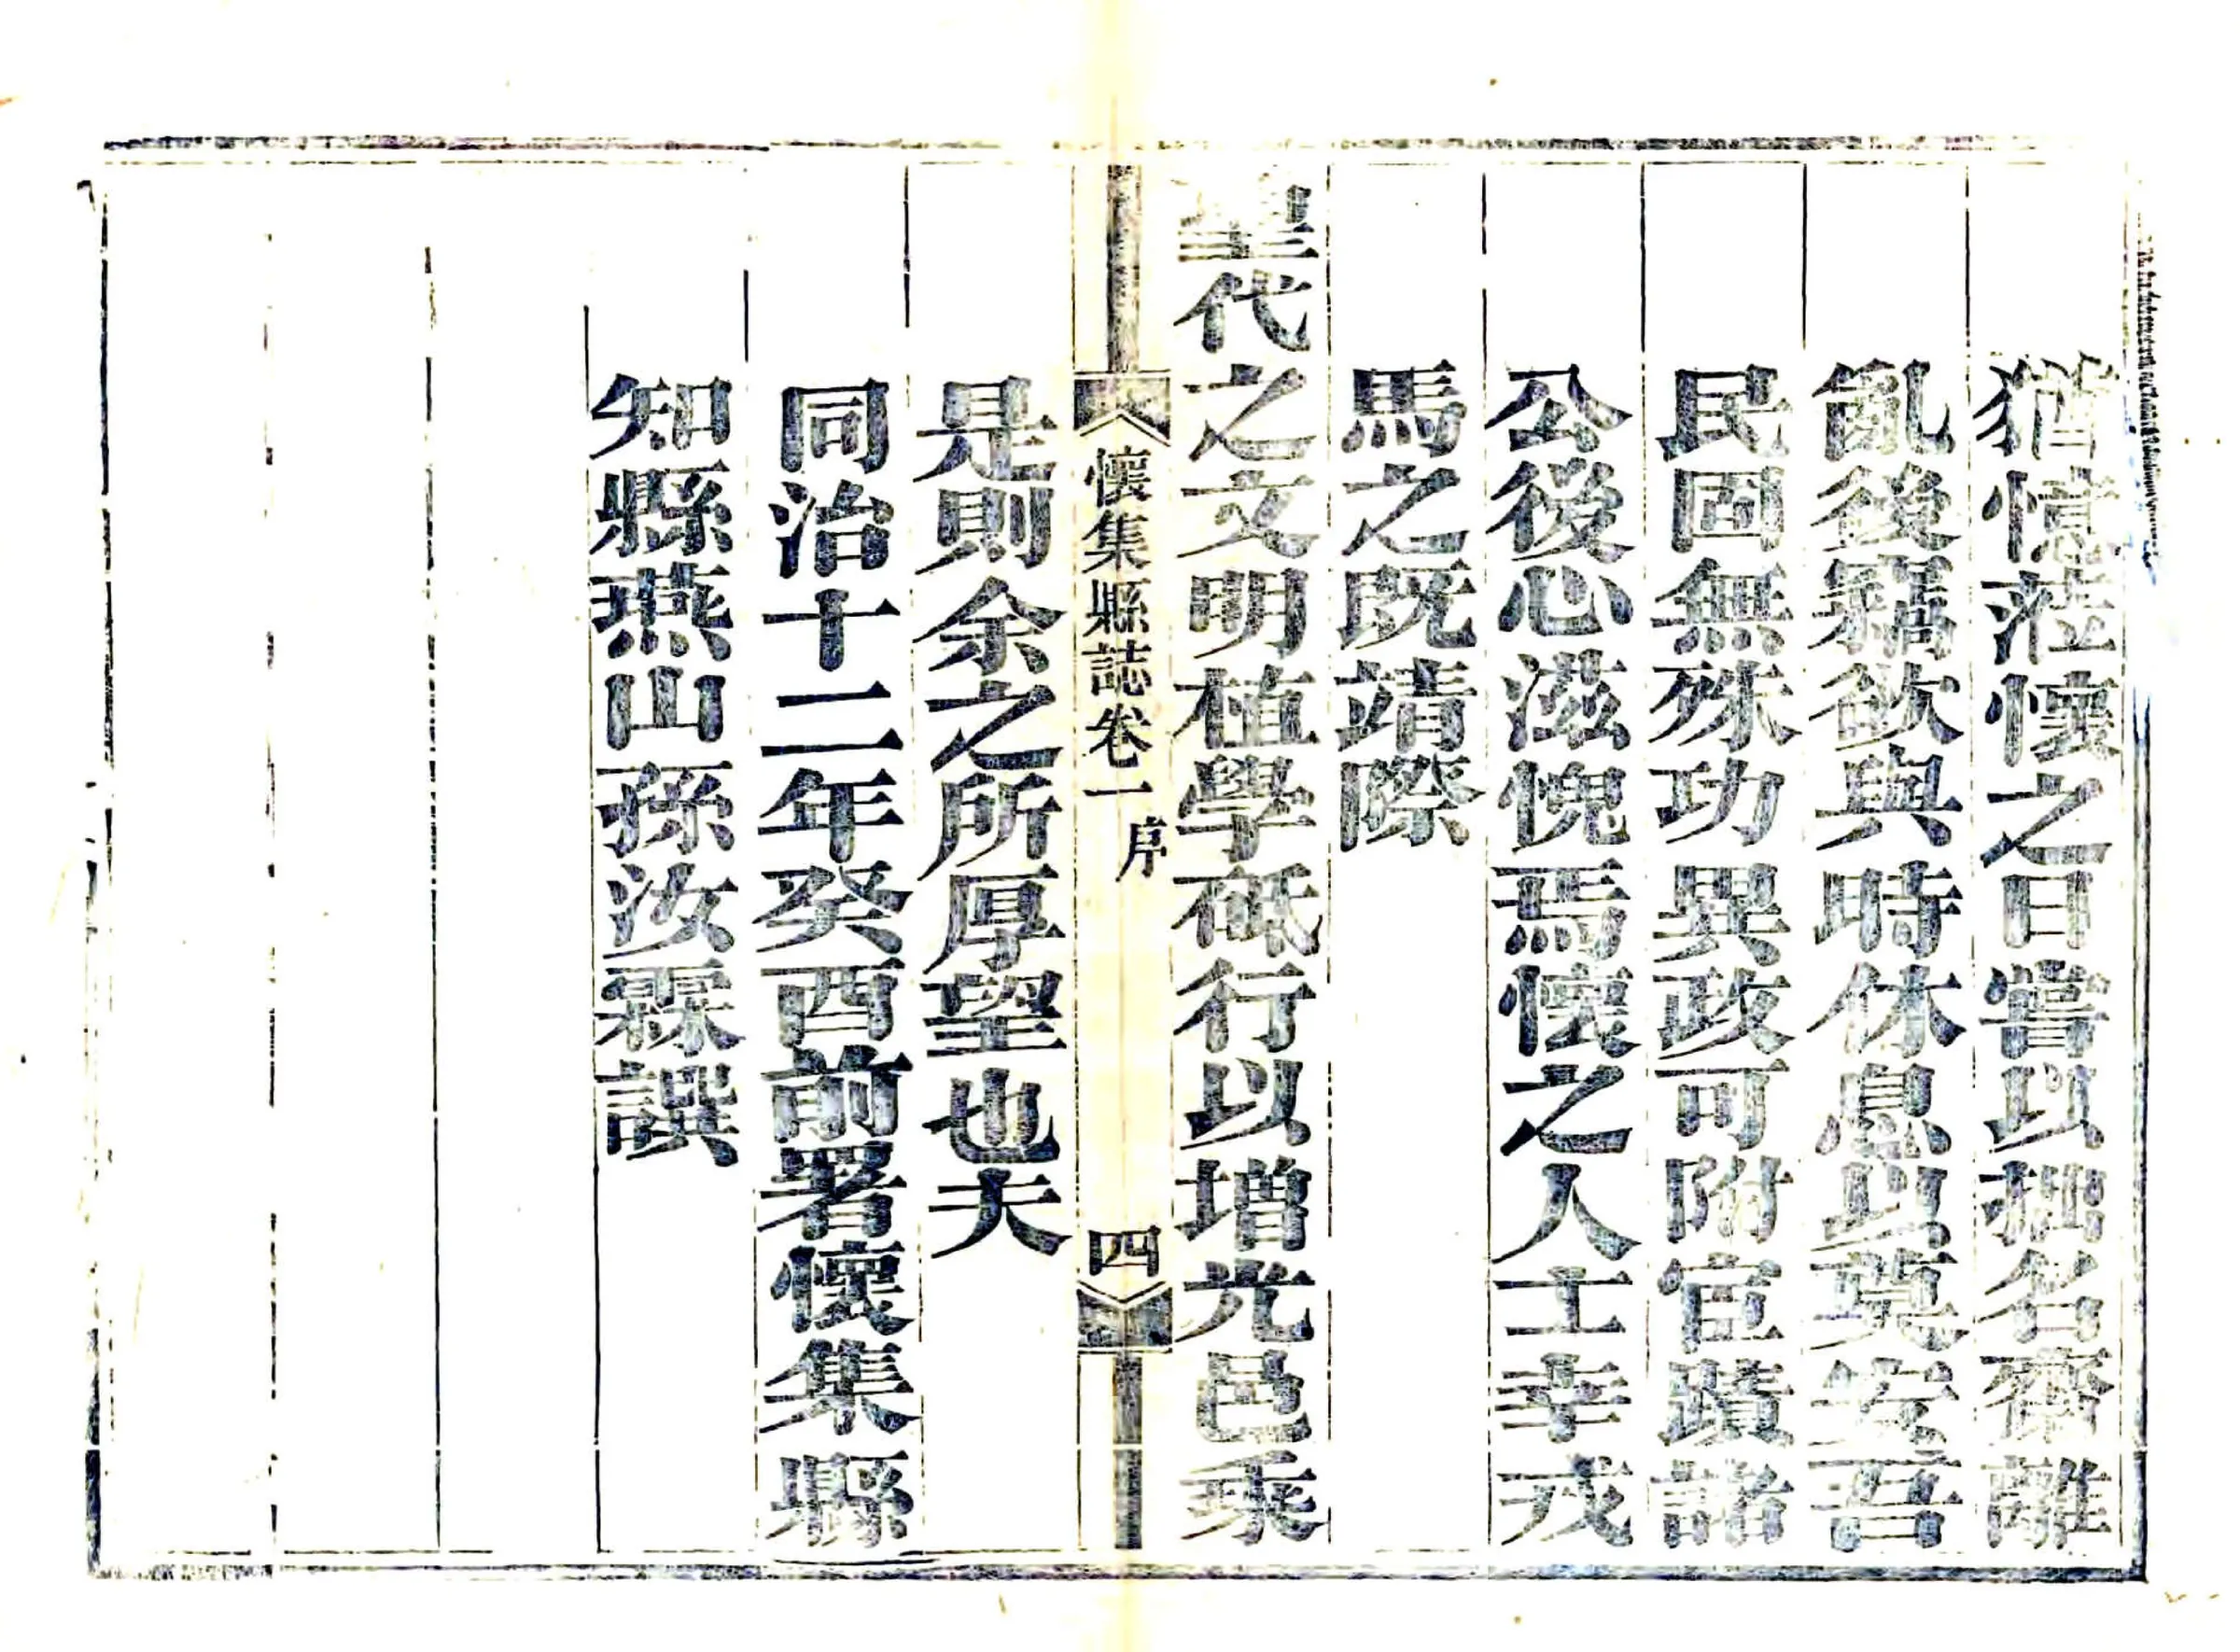 猶憶蒞懷之日嘗以拙名齋離
亂後竊欲與時休息以奠安吾
民固無殊功異政可附宦蹟諸
公後心滋愧焉懷之人士幸戎
馬之既靖際
聖代之文明植學砥行以增光邑乘
懷集縣誌卷一 序 四
是則余之所厚望也夫
同治十二年癸酉前署懷集縣
知縣燕山孫汝霖譔